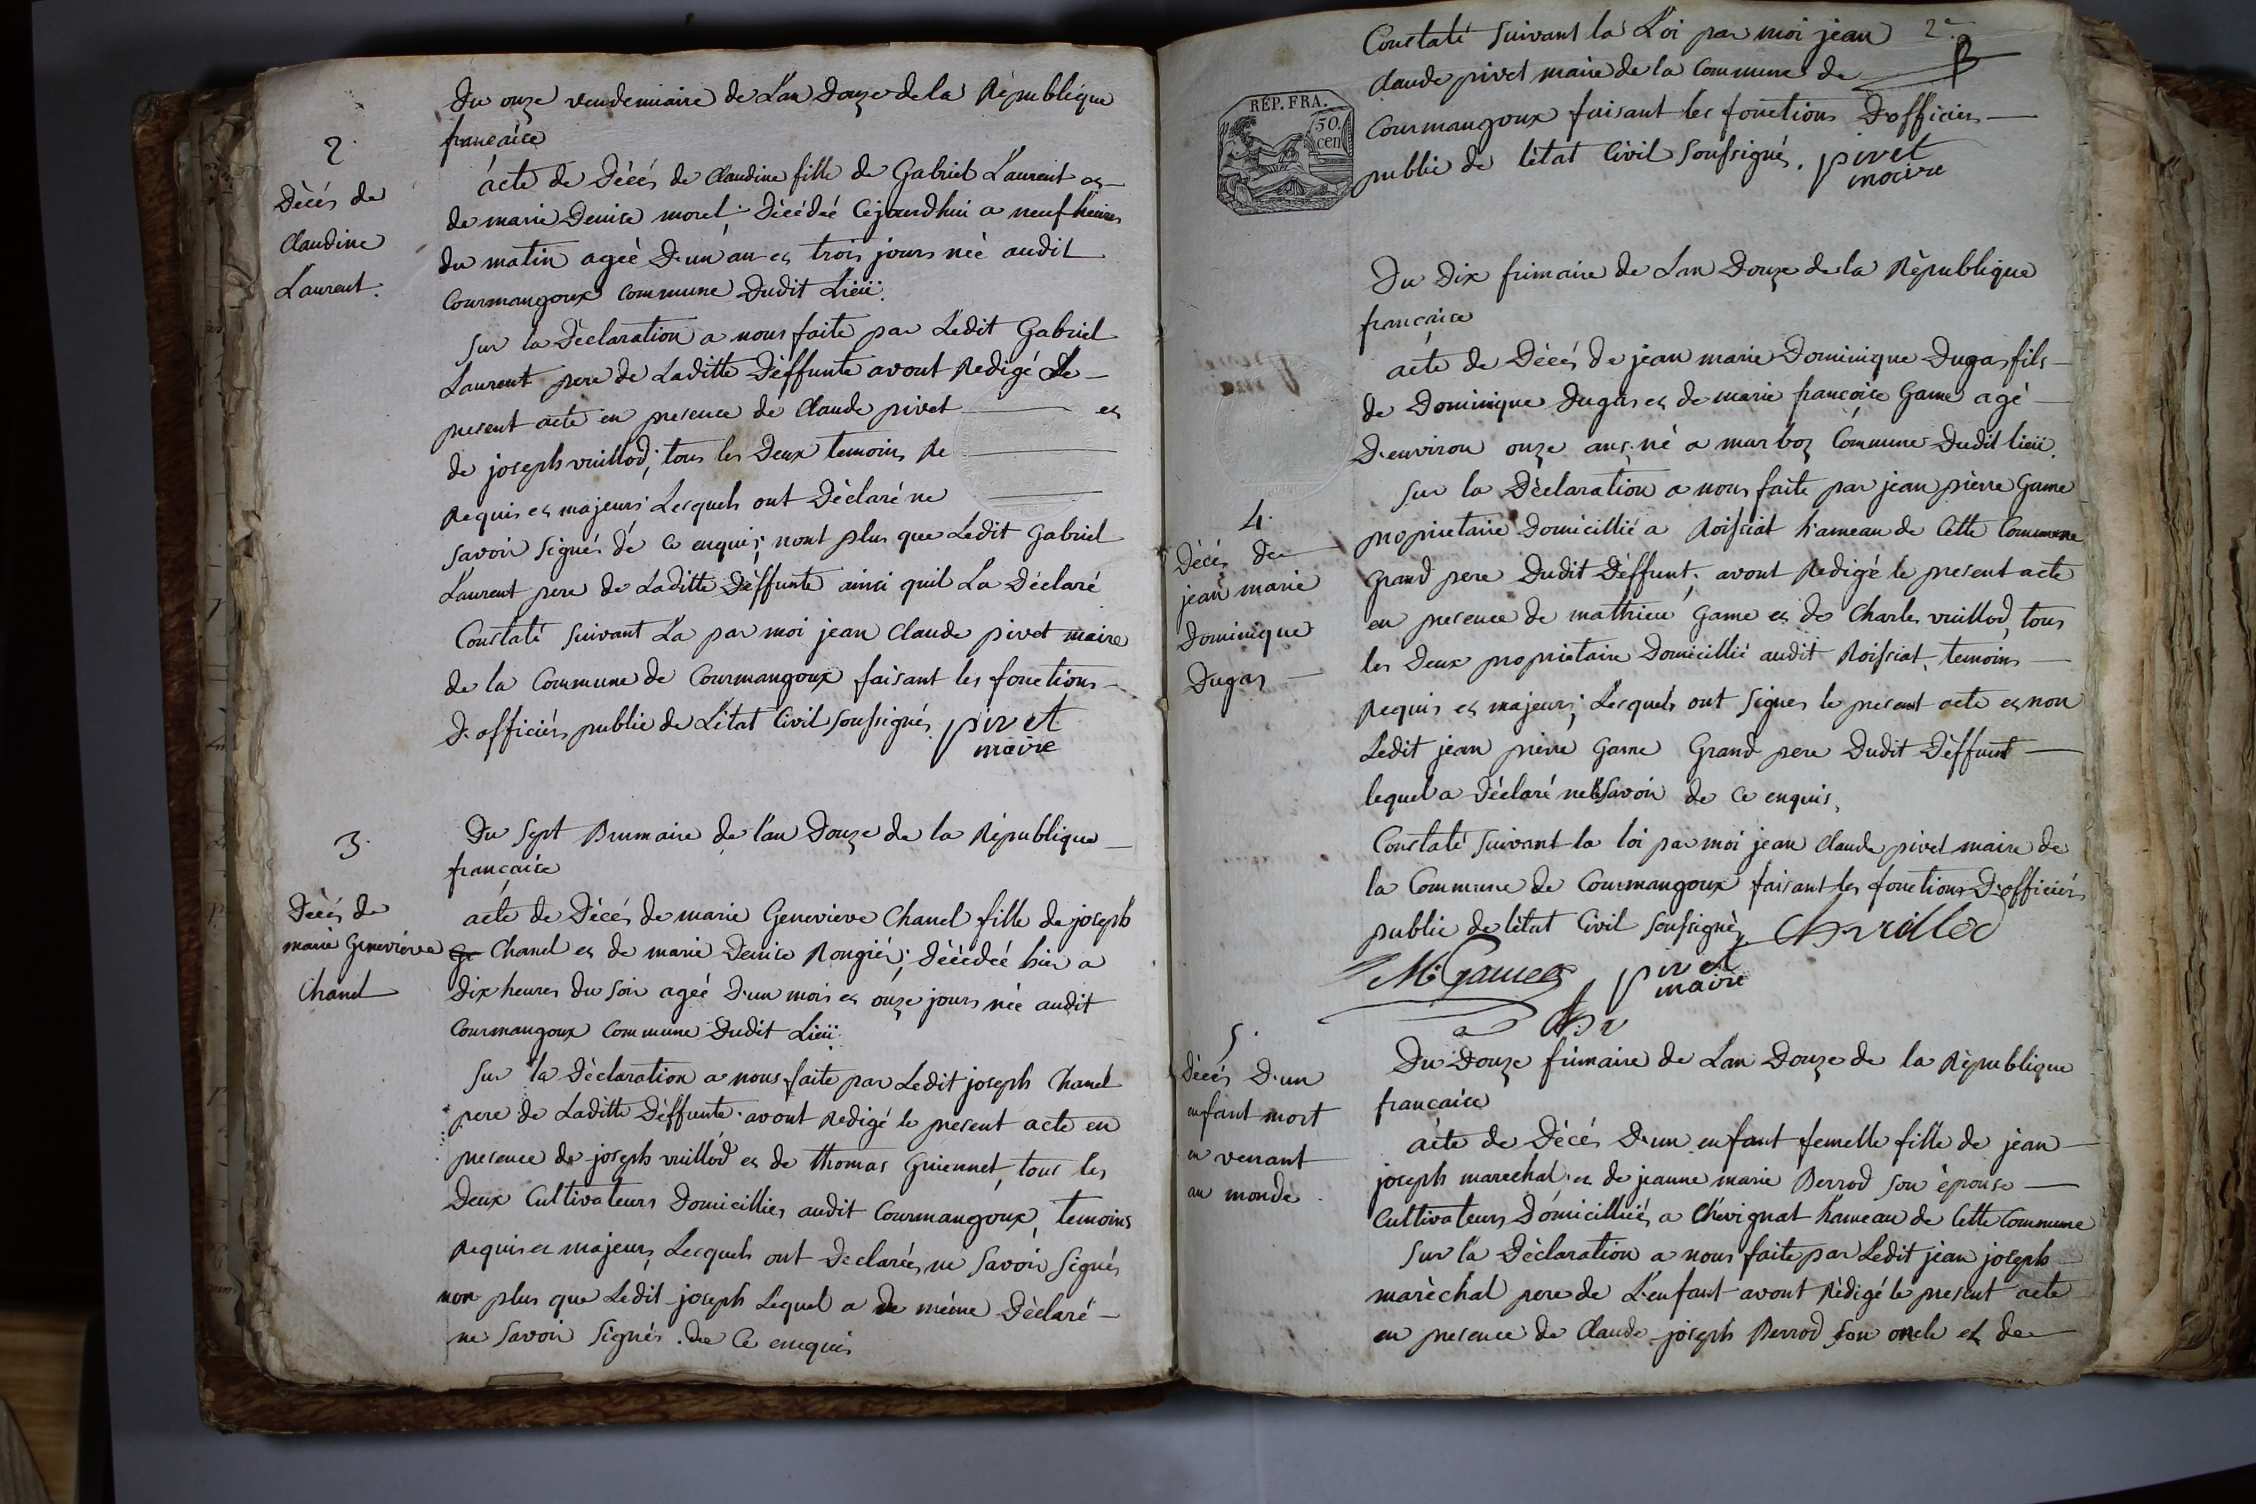 2.
Décés de
Claudine
Laurent.
Du onze vendemiaire de L'an Douze de la République
française
acte de Décés de Claudine fille de Gabriel Laurent et
de marie Denise morel. Décédée Cejourdhui a neuf heures
du matin agée D'un an et trois jours née audit
Courmangoux Commune Dudit Lieü.
Sur la Déclaration a nous faite par Ledit Gabriel
Laurent pere de Laditte Déffunte avont Redigé Le
present acte en presence de Claude pivet et
de joseph vuillod; tous les Deux temoins Re
Requis et majeurs Lesquels ont Déclaré ne
savoir signés de ce enquis; nont plus que Ledit Gabriel
Laurent pere de Laditte Déffunte ainsi quil La Déclaré
Constaté suivant La par moi jean Claude pivet maire
de la Commune de Courmangoux faisant les fonctions
D'officiérs public de L'état Civil soussignés. pivet
maire
3.
Décés de
marie Genevieve
Chanel
Du sept Brumaire de l'an Douze de la République
française
acte de Décés de marie Genevieve Chanel fille de joseph
Ge Chanel et de marie Denise Rongiér; Décédée hier a
Dix heures du soir agée D'un mois et onze jours née audit
Courmangoux Commune Dudit Lieü.
Sur la Déclaration a nous faite par Ledit joseph Chanel
pere de Laditte Déffunte. avont Redigé le present acte en
presence de joseph vuillod et de thomas Guiennet, tous les
Deux Cultivateurs Domicilliés audit Courmangoux, temoins
Requis et majeurs, Lesquels ont Declarés ne savoir signés
non plus que Ledit joseph Lequel a de méme Déclaré
ne savoir signés. de Ce enquis
2e
Constaté suivant la Loi par moi jean
Claude pivet maire de la Commune de
REP. FRA.
50.
cen
Courmangoux faisant les fonctions D'officiérs
public de l'état Civil soussignés. pivet
maire
4.
Décés de
jean marie
Dominique
Dugas
Du Dix frimaire de Lan Douze de la République
française
acte de Décés de jean marie Dominique Dugas fils
de Dominique Dugas et de marie françoise Game agé
D'environ onze ans né a marboz Commune Dudit lieü.
Sur la Déclaration a nous faite par jean pierre Game
proprietaire Domicillié a Roissiat hameau de Cette Commune
Grand pere Dudit Déffunt. avont Redigé le present acte
en presence de mathieu Game et de Charles vuillod, tous
les Deux proprietaire Domicillié audit Roissiat, temoins
Requis et majeurs, Lesquels ont signes le present acte et non
Ledit jean pierre Game Grand pere Dudit Déffunt
lequel a Déclaré ne le savoir de Ce enquis,
Constaté suivant la loi par moi jean Claude pivet maire de
la Commune de Courmangoux faisant les fonctions D'officiérs
public de l'état Civil soussigné, Ch. vuillod
M. Game pivet
maire
5.
Décés D'un
enfant mort
en venant
au monde.
Du Douze frimaire de Lan Douze de la République
française
acte de Décés D'un enfant femelle fille de jean
joseph marechal et de jeanne marie Berrod son épouse
Cultivateurs Domicilliés a Chévignat hameau de Cette Commune
Sur la Déclaration a nous faite par Ledit jean joseph
maréchal pere de L'enfant avont Rédigé le present acte
en presence de Claude joseph Berrod son oncle et de